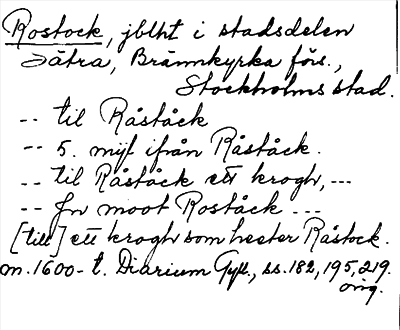 Rostock, jblht i stadsdelen
Sätra, Brännkyrka förs.,
Stockholms stad.
-- til Råståck
-- 5. mijl ifrån Råståck.
-- til Råståck ett krogh, ---
-- Jn moot Roståck ---
[till] ett krogh som heeter Råstock.
m. 1600-t. Diarium Gyll., ss. 182, 195, 219.
orig.